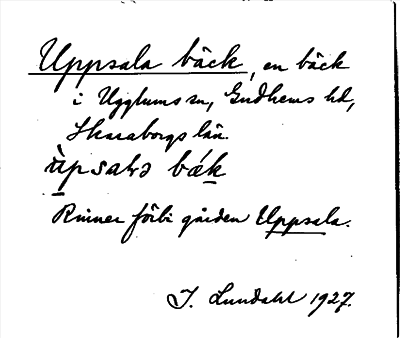 Uppsala bäck, en bäck
i Ugglums sn, Gudhems hd,
Skaraborgs län.
ùpsala bák
Rinner förbi gården Uppsala.
I. Lundahl 1927.